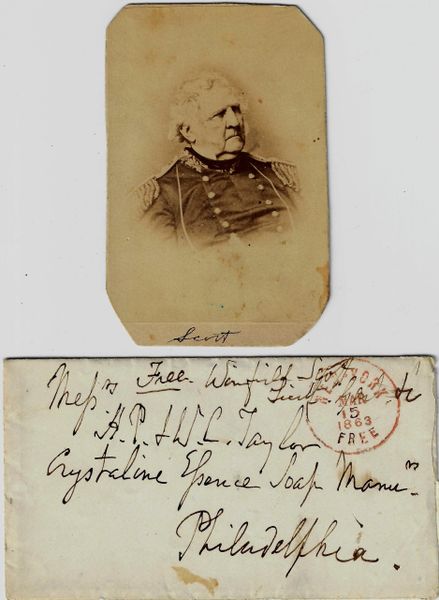 Scott
Free. Winfield Scott
Messrs
H. P. & W. C. Taylor
Crystaline Essence Soap Manu.rs
Philadelphia.
NEW YORK
MAR
15
1863
FREE